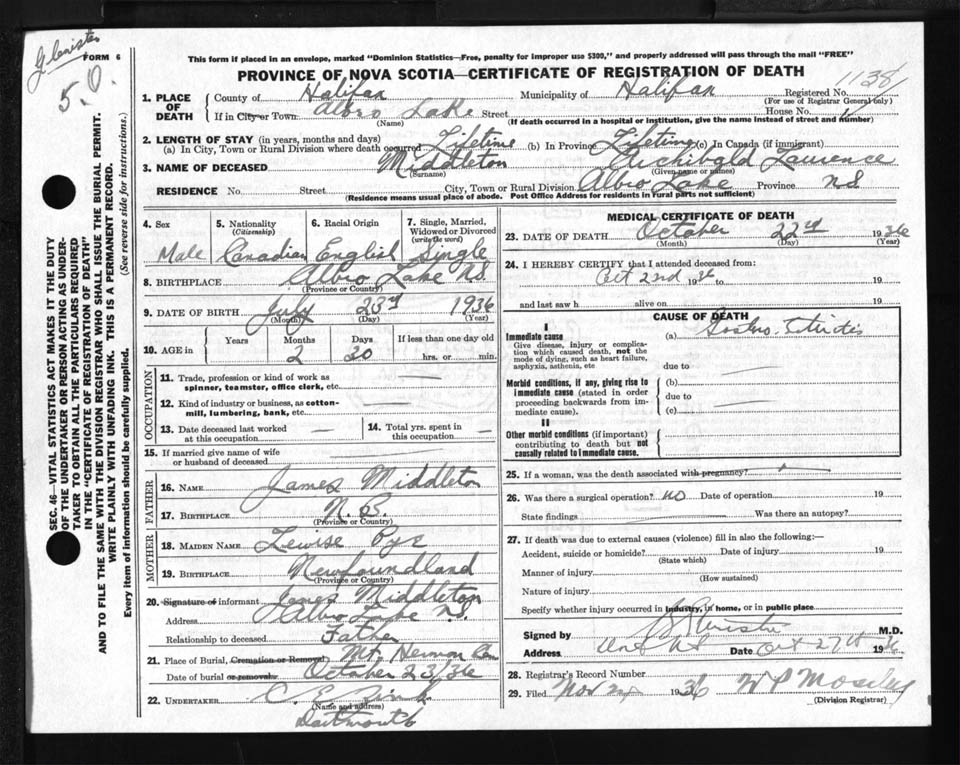 FORM 6
5.0.
This form if placed in an envelope, marked "Dominion Statistics—Free, penalty for improper use $300," and properly addressed will pass through the mail "FREE"
PROVINCE OF NOVA SCOTIA—CERTIFICATE OF REGISTRATION OF DEATH
1138
1. PLACE OF DEATH
County of Halifax Municipality of Halifax Registered No.
(For use of Registrar General only)
If in City or Town Albro Lake Street House No.
(Name) (If death occurred in a hospital or institution, give the name instead of street and number)
2. LENGTH OF STAY (in years, months and days)
(a) In City, Town or Rural Division where death occurred Lifetime (b) In Province Lifetime (c) In Canada (if immigrant)
3. NAME OF DECEASED Middleton Archibald Laurence
(Surname) (Given name or names)
RESIDENCE No. Street City, Town or Rural Division Albro Lake Province NS
(Residence means usual place of abode. Post Office Address for residents in rural parts not sufficient)
4. Sex Male
5. Nationality (Citizenship) Canadian
6. Racial Origin English
7. Single, Married, Widowed or Divorced (write the word) Single
8. BIRTHPLACE Albro Lake NS.
(Province or Country)
9. DATE OF BIRTH July 23rd 1936
(Month) (Day) (Year)
10. AGE in Years Months Days If less than one day old
2 30 hrs. or min.
OCCUPATION
11. Trade, profession or kind of work as spinner, teamster, office clerk, etc. —
12. Kind of industry or business, as cotton-mill, lumbering, bank, etc. —
13. Date deceased last worked at this occupation —
14. Total yrs. spent in this occupation —
15. If married give name of wife or husband of deceased —
FATHER
16. NAME James Middleton
17. BIRTHPLACE N.B.
(Province or Country)
MOTHER
18. MAIDEN NAME Lewise Pye
19. BIRTHPLACE Newfoundland
(Province or Country)
20. Signature of informant James Middleton
Address Albro Lake N.S.
Relationship to deceased Father
21. Place of Burial, Cremation or Removal Mt. Hermon Cem
Date of burial or removal October 23, 36
22. UNDERTAKER C. E.
(Name and address)
Dartmouth
MEDICAL CERTIFICATE OF DEATH
23. DATE OF DEATH October 22nd 1936
(Month) (Day) (Year)
24. I HEREBY CERTIFY that I attended deceased from:
Oct 22nd 1936 to 19
and last saw h alive on 19
CAUSE OF DEATH
I
Immediate cause (a)
Give disease, injury or complication which caused death, not the mode of dying, such as heart failure, asphyxia, asthenia, etc
due to —
Morbid conditions, if any, giving rise to immediate cause (stated in order proceeding backwards from immediate cause).
(b)
due to —
(c)
II
Other morbid conditions (if important) contributing to death but not causally related to immediate cause.
25. If a woman, was the death associated with pregnancy?
26. Was there a surgical operation? no Date of operation 19
State findings Was there an autopsy?
27. If death was due to external causes (violence) fill in also the following:—
Accident, suicide or homicide? Date of injury 19
(State which)
Manner of injury
(How sustained)
Nature of injury
Specify whether injury occurred in industry, in home, or in public place
Signed by M.D.
Address Date Oct 27th 1936
28. Registrar's Record Number
29. Filed Nov 1936 W P Moseley
(Division Registrar)
SEC. 46—VITAL STATISTICS ACT MAKES IT THE DUTY
OF THE UNDERTAKER OR PERSON ACTING AS UNDER-
TAKER TO OBTAIN ALL THE PARTICULARS REQUIRED
IN THE "CERTIFICATE OF REGISTRATION OF DEATH"
AND TO FILE THE SAME WITH THE DIVISION REGISTRAR WHO SHALL ISSUE THE BURIAL PERMIT.
WRITE PLAINLY WITH UNFADING INK. THIS IS A PERMANENT RECORD.
Every item of information should be carefully supplied. (See reverse side for instructions.)